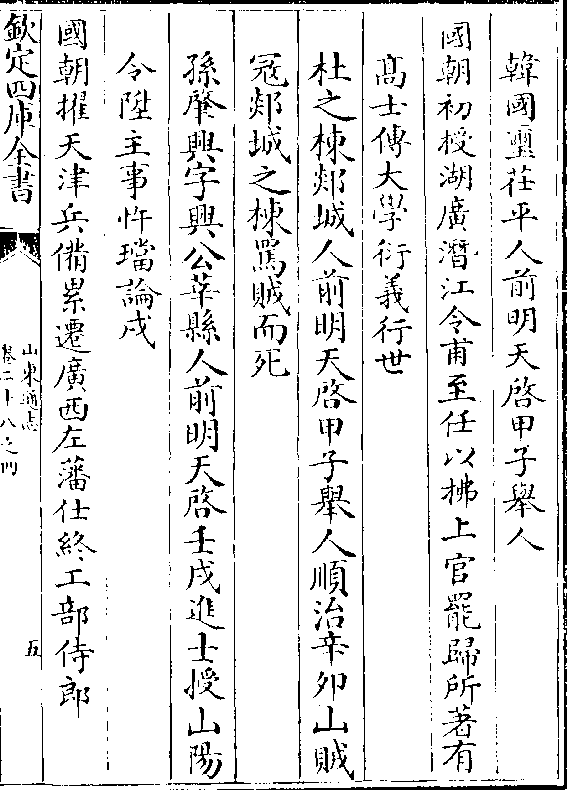 韓國璽茌平人前明天啓甲子舉人
國朝初授湖廣潛江令甫至任以拂上官罷歸所著有
髙士傳大學衍義行世
杜之棟郯城人前明天啓甲子舉人順治辛卯山賊
冦郯城之棟罵賊而死
孫肇興字興公莘縣人前明天啓壬戌進士授山陽
令陞主事忤璫論戍
國朝擢天津兵備累遷廣西左藩仕終工部侍郎
欽定四庫全書
山東通志
卷二十八之四
五